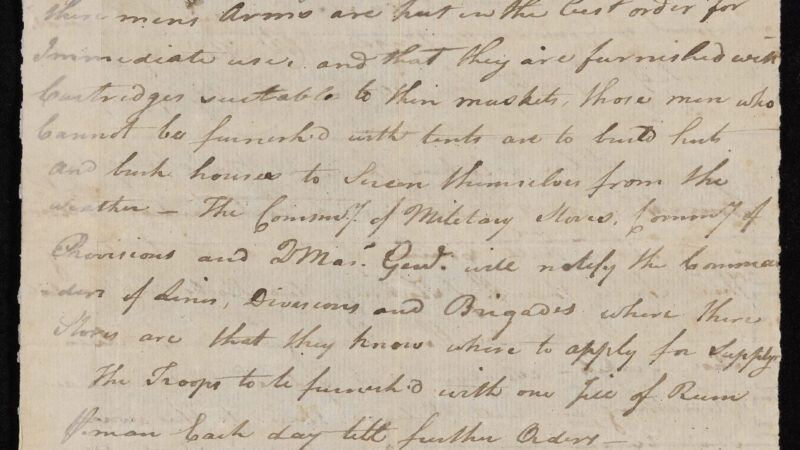 these mens Arms are put in the best order for
Immediate use, and that they are furnished with
Cartridges suitable to their muskets, those men who
Cannot be furnish'd with tents are to build huts
and bush houses to Screen themselves from the
weather — The Commy. of Military Stores, Commy. of
Provisions and QMasr. Genl. will notify the Comma
nders of Lines, Divisions and Brigades where there
Stores are that they know where to apply for Supply
The Troops to be furnish'd with one Jill of Rum
man Each day till further Orders —